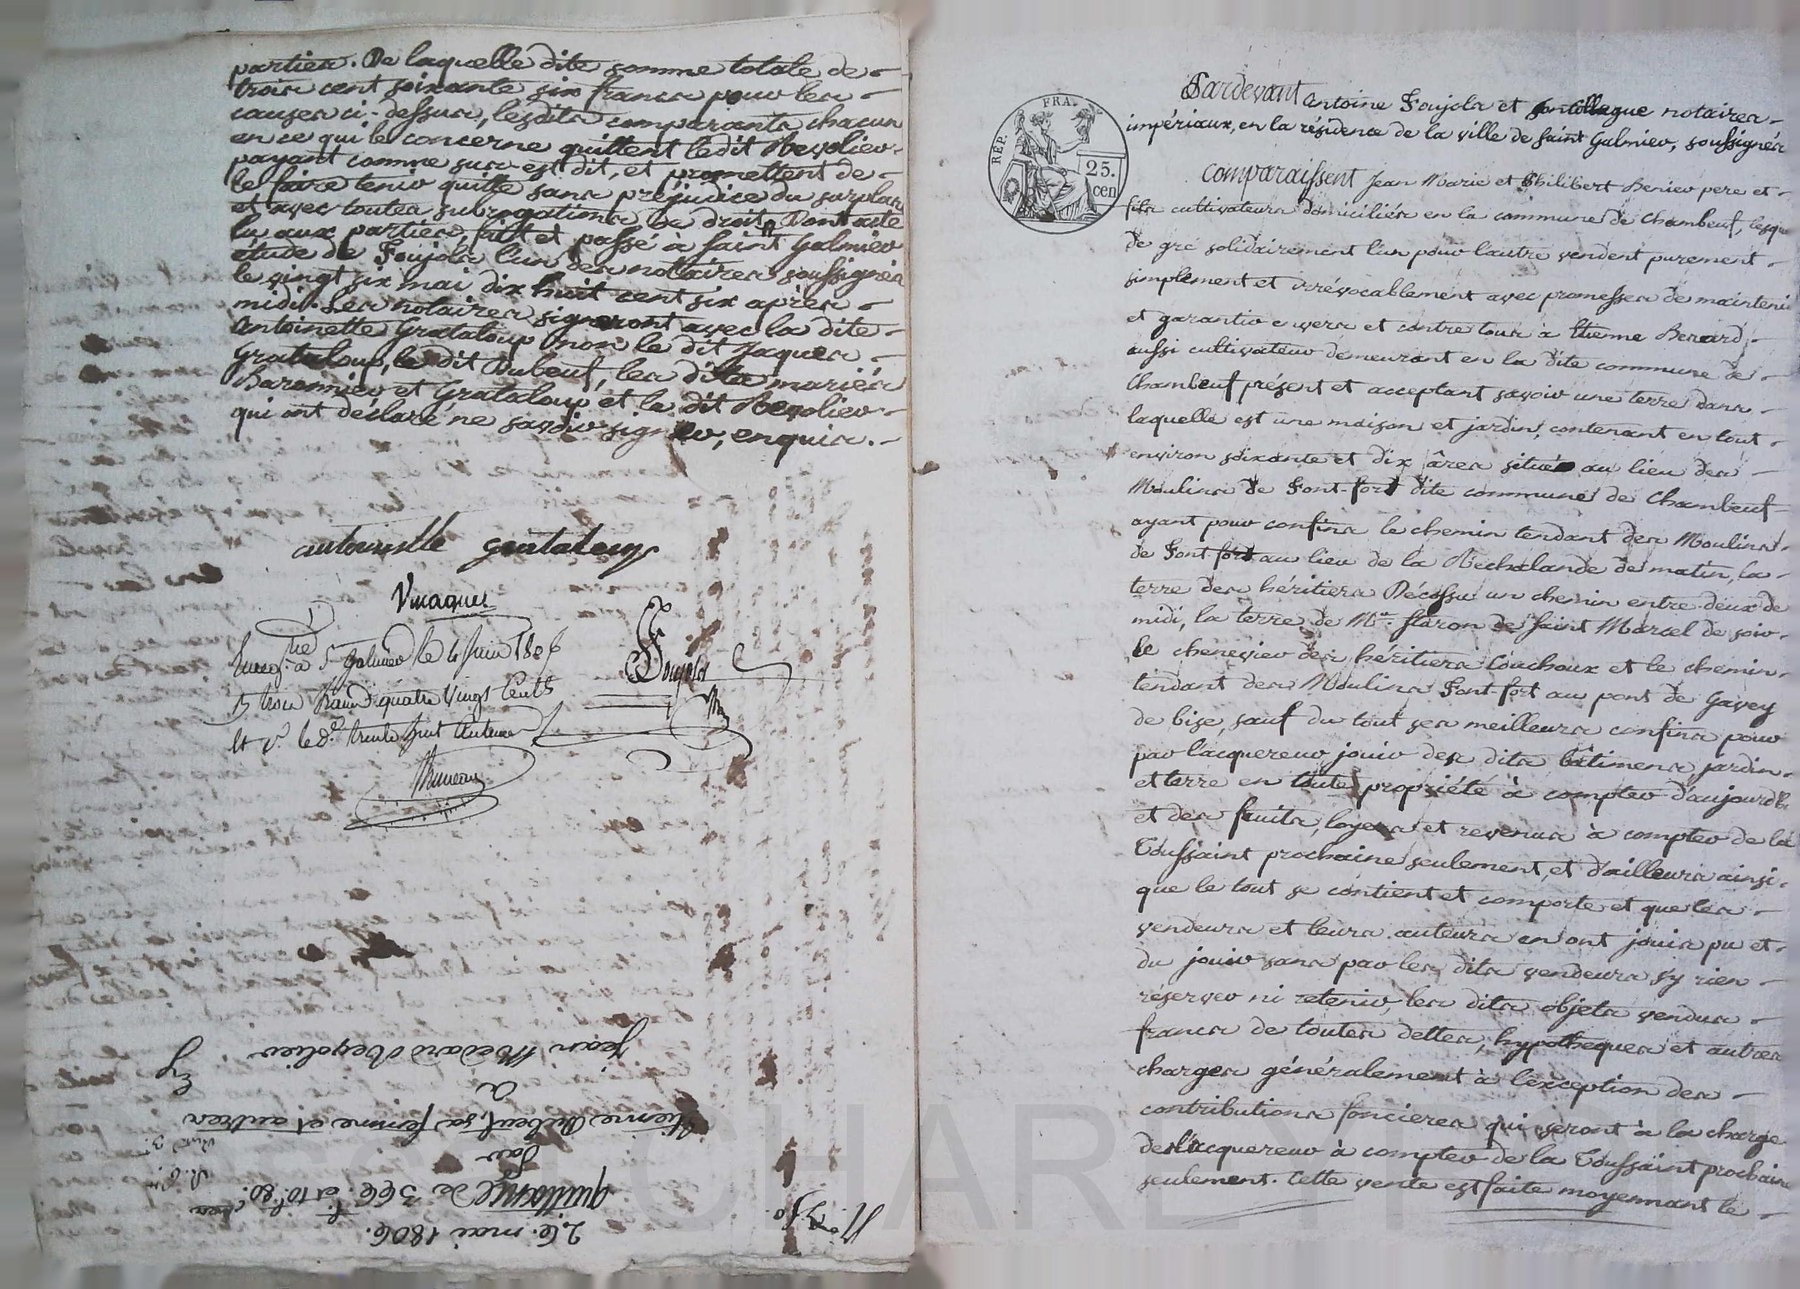 parties. De laquelle dite somme totale de
trois cent soixante six francs pour les
causes ci-dessus, lesdits comparants chacun
en ce qui le concerne quittent ledit Revolier
payant comme sus est dit, et promettent de
le faire tenir quitte sans préjudice du surplus
et avec toutes subrogations de droit. Dont acte
lu aux parties fait et passé à Saint Galmier
étude de Foujols l'un des notaires soussignés
le vingt six mai dix huit cent six après
midi. Les notaires signeront avec la dite
Antoinette Grataloup non le dit Jaques
Grataloup, le dit Dubeuf, les dits mariés
Baronnier et Grataloup et le dit Revolier
qui ont déclaré ne savoir signer, enquis.
antoinette grataloup
Foujols
Enreg.tré à St Galmier le 4 juin 1806
trois francs quatre vingt cents
et r. le d.e trente huit centimes
Jean Médard Revolier
à
Etienne Dubeuf, sa femme et autres
Par
quittance de 366.f et 10.f 80.c
26. mai 1806.
REP. FRA.
25.
cen
Pardevant Antoine Foujols et son collegue notaires
impériaux, en la résidence de la ville de Saint Galmier, soussignés
Comparaissent Jean Marie et Philibert Renier pere et
fils cultivateurs domiciliés en la commune de Chambeuf, lesquels
de gré solidairement l'un pour l'autre vendent purement
simplement et irrévocablement avec promesses de maintenir
et garantir envers et contre tous à Etienne Berard
aussi cultivateur demeurant en la dite commune de
Chambeuf présent et acceptant savoir une terre dans
laquelle est une maison et jardin, contenant en tout
environ soixante et dix âres située au lieu des
Moulins de Font-fort dite commune de Chambeuf
ayant pour confins le chemin tendant des Moulins
de Font fort au lieu de la Rechalande de matin, la
terre des héritiers Décossu un chemin entre deux de
midi, la terre de Mr. flaron de Saint Marcel de soir
le chenevier des héritiers Couchoux et le chemin
tendant des Moulins Font-fort au pont de Gavey
de bise, sauf du tout ses meilleurs confins pour
par l'acquereur jouir des dits bâtimens, jardin
et terre en toute propriété à compter d'aujourd'hui
et des fruits, loyers et revenus à compter de la
Toussaint prochaine seulement, et d'ailleurs ainsi
que le tout se contient et comporte et que les
vendeurs et leurs auteurs en ont jouis pu et
du jouir sans par les dits vendeurs s'y rien
réserver ni retenir, les dits objets vendus
francs de toutes dettes, hypotheques et autres
charges généralement à l'exception des
contributions foncieres qui seront à la charge
de l'acquereur à compter de la Toussaint prochaine
seulement. Cette vente est faite moyennant le